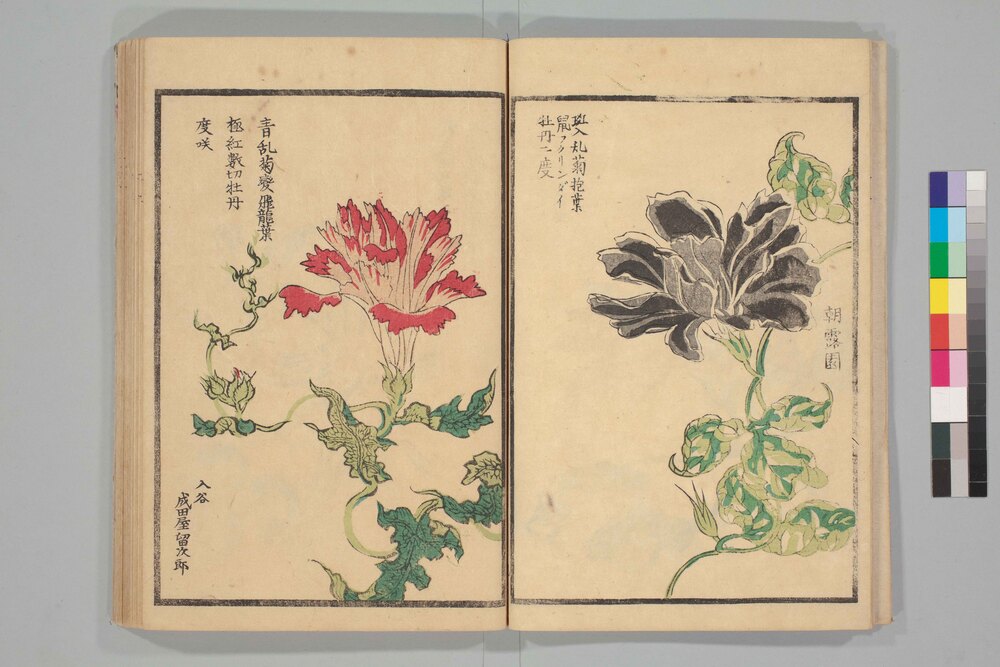 斑入乱菊抱葉
鼠フクリンダイ
牡丹二度
朝露園
青乱菊変飛龍葉
極紅數切牡丹
度咲
入谷
成田屋留次郎